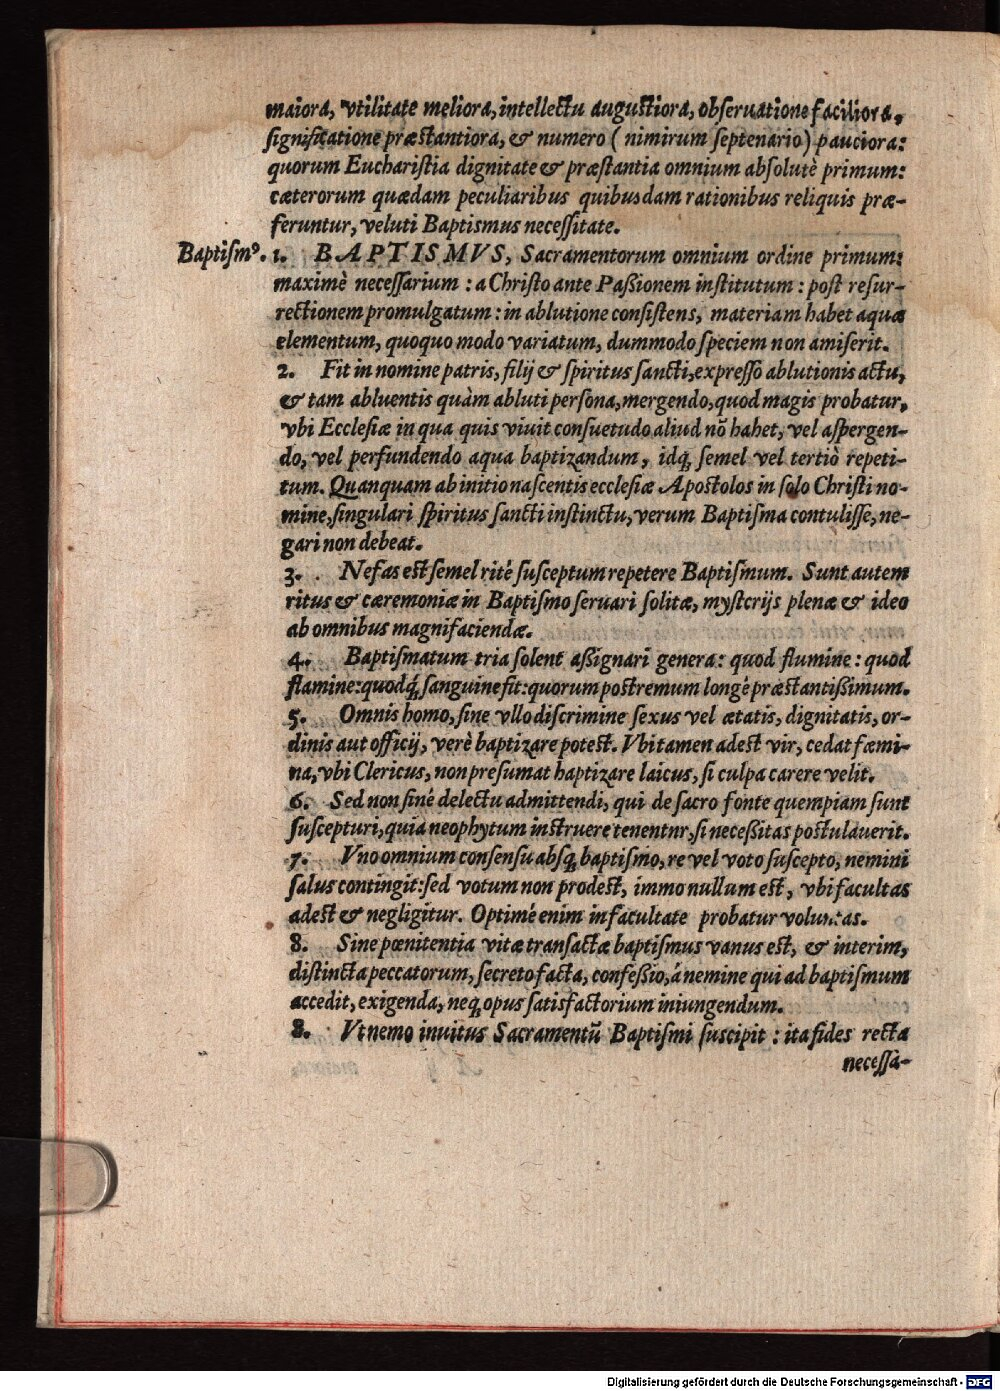 maiora, vtilitate meliora, intellectu augustiora, obseruatione faciliora,
significatione præstantiora, & numero ( nimirum septenario ) pauciora:
quorum Eucharistia dignitate & præstantia omnium absolutè primum:
cæterorum quædam peculiaribus quibusdam rationibus reliquis præ-
feruntur, veluti Baptismus necessitate.
Baptismꝰ. 1. BAPTISMVS, Sacramentorum omnium ordine primum:
maximè necessarium : a Christo ante Passionem institutum : post resur-
rectionem promulgatum : in ablutione consistens, materiam habet aquæ
elementum, quoquo modo variatum, dummodo speciem non amiserit.
2. Fit in nomine patris, filij & spiritus sancti, expresso ablutionis actu,
& tam abluentis quàm abluti persona, mergendo, quod magis probatur,
vbi Ecclesiæ in qua quis viuit consuetudo aliud nō habet, vel aspergen-
do, vel perfundendo aqua baptizandum, idq́, semel vel tertiò repeti-
tum. Quanquam ab initio nascentis ecclesiæ Apostolos in solo Christi no-
mine, singulari spiritus sancti instinctu, verum Baptisma contulisse, ne-
gari non debeat.
3. Nefas est semel rité susceptum repetere Baptismum. Sunt autem
ritus & cæremoniæ in Baptismo seruari solitæ, mysterijs plenæ & ideo
ab omnibus magnifaciendæ.
4. Baptismatum tria solent assignari genera: quod flumine: quod
flamine: quodq́, sanguine fit: quorum postremum longé præstantissimum.
5. Omnis homo, sine vllo discrimine sexus vel ætatis, dignitatis, or-
dinis aut officij, verè baptizare potest. Vbi tamen adest vir, cedat fæmi-
na, vbi Clericus, non presumat baptizare laicus, si culpa carere velit.
6. Sed non siné delectu admittendi, qui de sacro fonte quempiam sunt
suscepturi, quia neophytum instruere tenentnr, si necessitas postulauerit.
7. Vno omnium consensu absq, baptismo, re vel voto suscepto, nemini
salus contingit: sed votum non prodest, immo nullum est, vbi facultas
adest & negligitur. Optimé enim in facultate probatur voluntas.
8. Sine pœnitentia vitæ transactæ baptismus vanus est, & interim,
distincta peccatorum, secreto facta, confessio, á nemine qui ad baptismum
accedit, exigenda, neq, opus satisfactorium iniungendum.
8. Vt nemo inuitus Sacramentū Baptismi suscipit : ita fides recta
necessa-
Digitalisierung gefördert durch die Deutsche Forschungsgemeinschaft - DFG